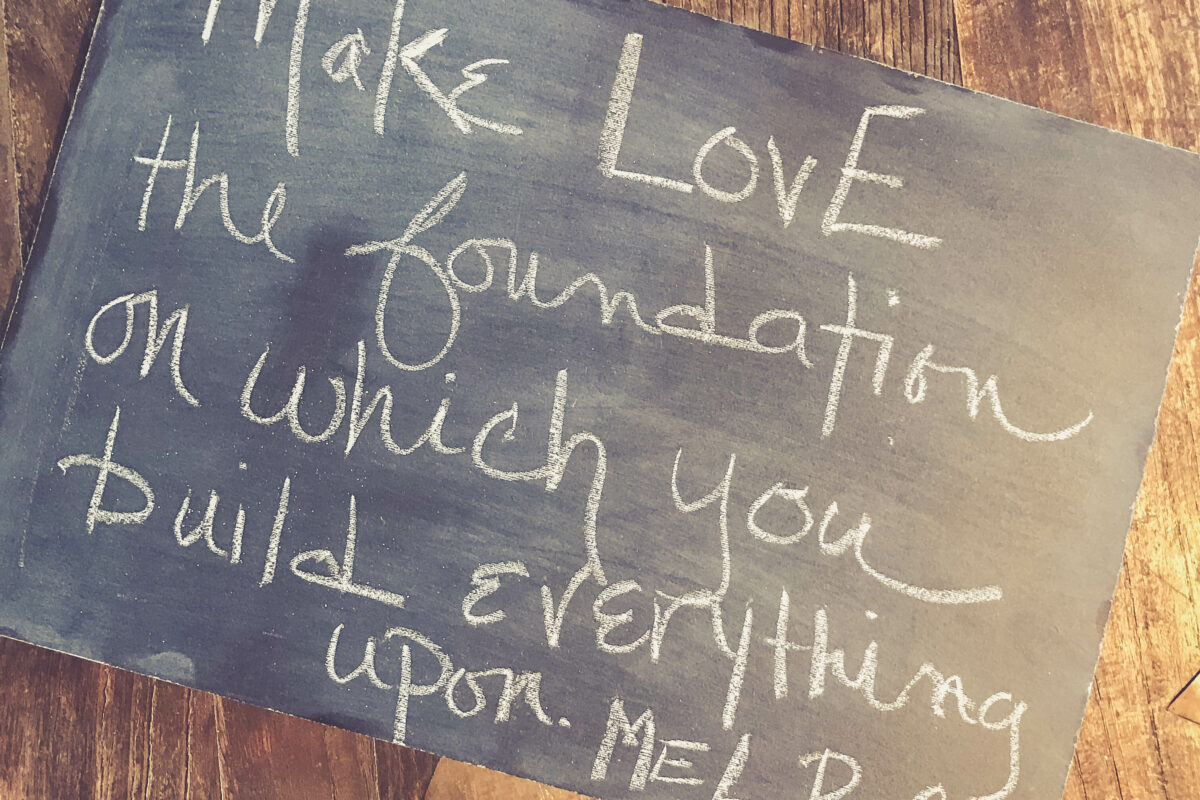 Make LovE
the foundation
on which you
build EvErything
upon. MEL